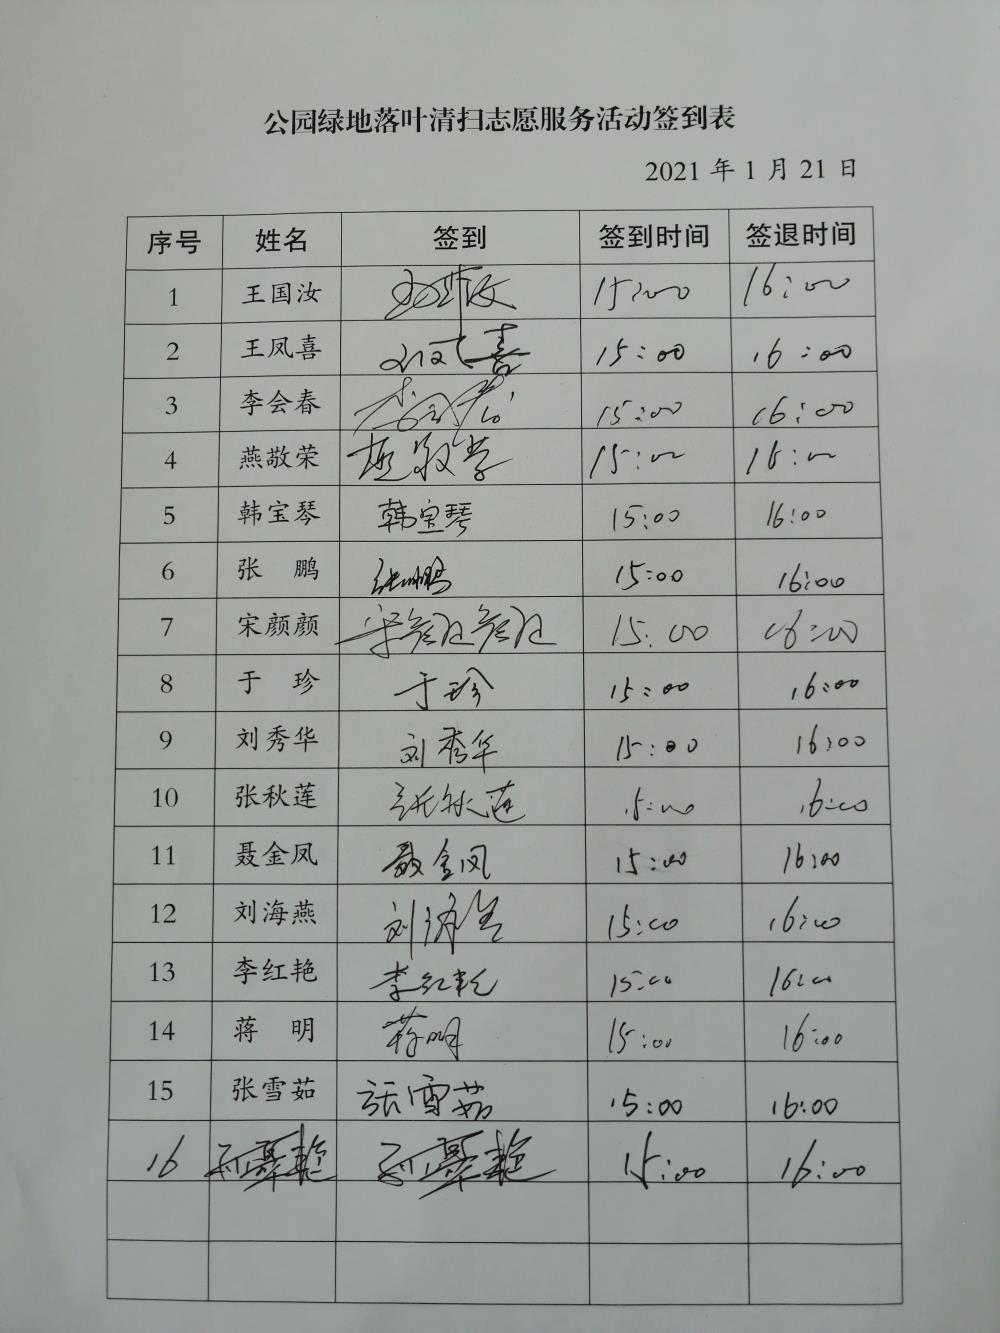 公园绿地落叶清扫志愿服务活动签到表
2021 年 1 月 21 日
序号 姓名 签到 签到时间 签退时间
1 王国汝 15:00 16:00
2 王凤喜 王凤喜 15:00 16:00
3 李会春 李会春 15:00 16:00
4 燕敬荣 燕敬荣 15:00 16:00
5 韩宝琴 韩宝琴 15:00 16:00
6 张 鹏 张鹏 15:00 16:00
7 宋颜颜 宋颜颜 15:00 16:00
8 于 珍 于珍 15:00 16:00
9 刘秀华 刘秀华 15:00 16:00
10 张秋莲 张秋莲 15:00 16:00
11 聂金凤 聂金凤 15:00 16:00
12 刘海燕 刘海燕 15:00 16:00
13 李红艳 李红艳 15:00 16:00
14 蒋 明 蒋明 15:00 16:00
15 张雪茹 張雪茹 15:00 16:00
16 15:00 16:00